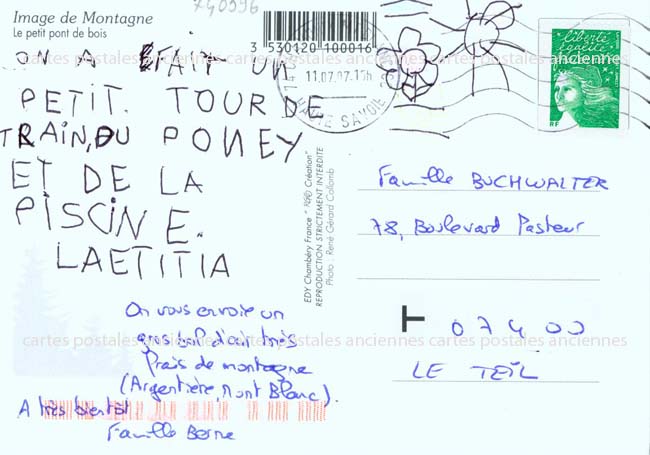 740996
Image de Montagne
Le petit pont de bois
3 530120 100016
11.07.97.15h
HAUTE SAVOIE
liberté
égalité
RF
ON A FAIT UN
PETIT. TOUR DE
TRAIN, DU PONEY
ET DE LA
PISCINE.
LAETITIA
cartes postales anciennes cartes postales anciennes cartes postales anciennes
EDY Chambéry France "Création"
REPRODUCTION STRICTEMENT INTERDITE
Photo : René Gérard Collomb
Famille BUCHWALTER
78, Boulevard Pasteur
T 07400
LE TEIL
On vous envoie un
gros bol d'air très
frais de montagne
(Argentière, Mont Blanc).
A très bientôt
Famille Berne